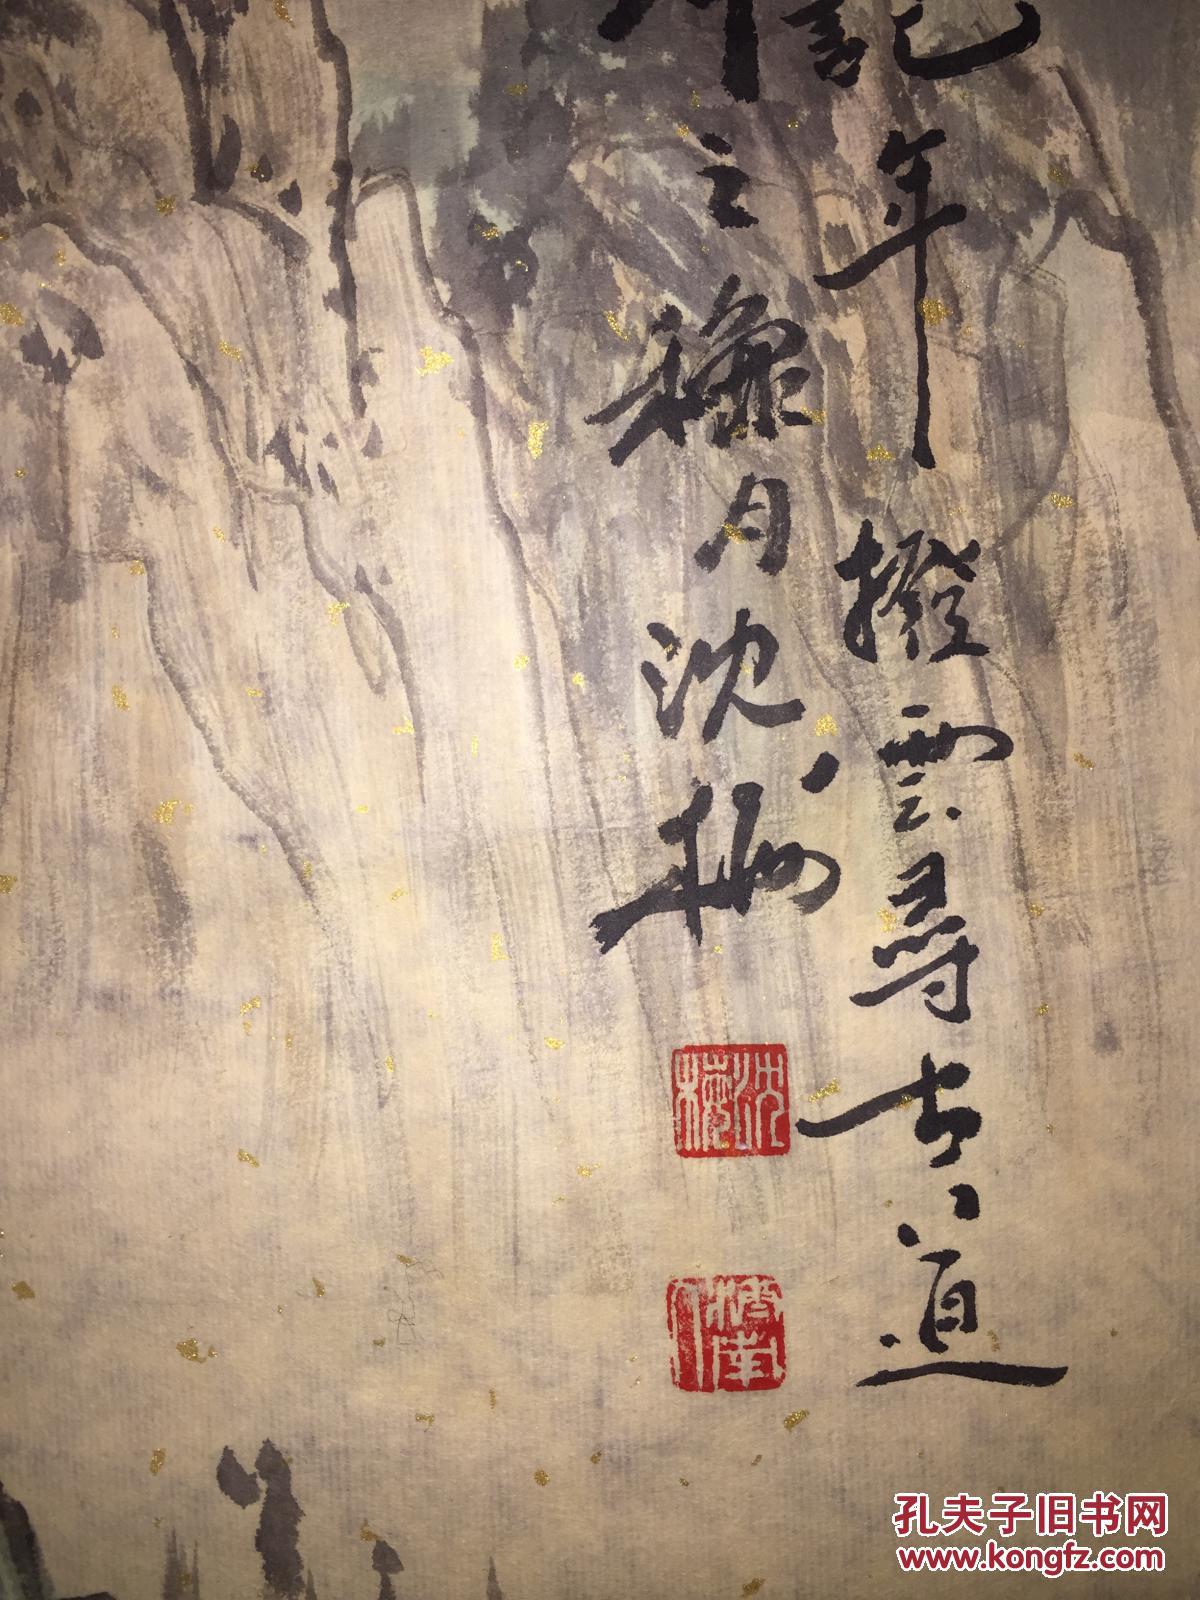 記年撥雲尋古道
之穐月沈
沈
孔夫子旧书网
www.kongfz.com